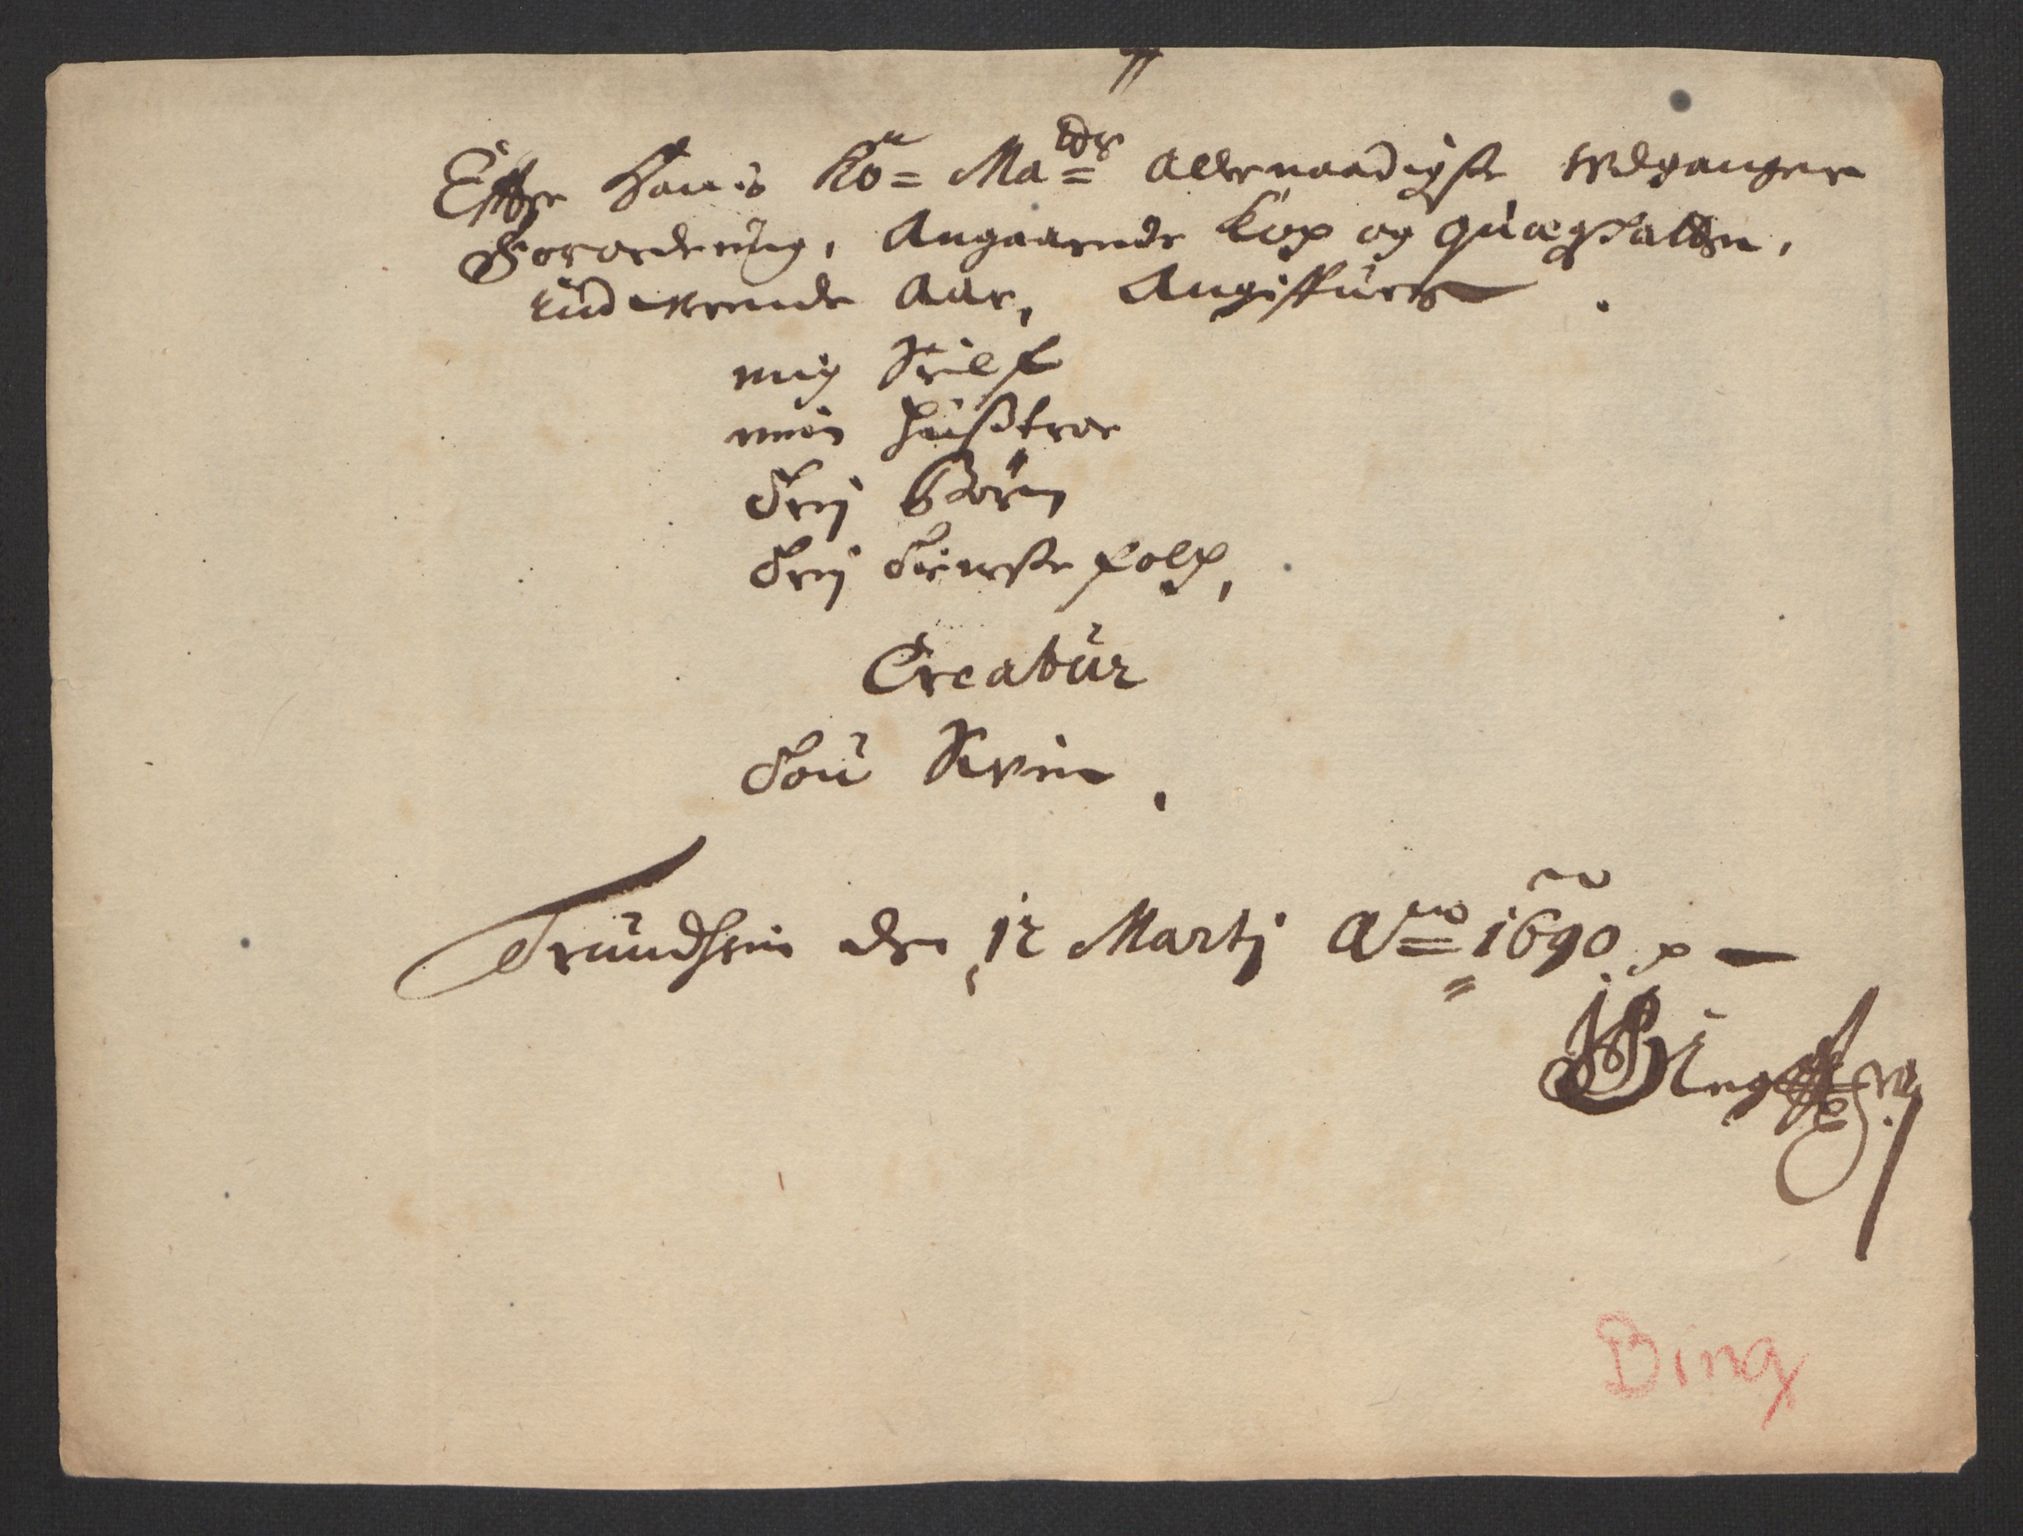 Effter Hans Ko= Ma=tts Allernaadigste Udgangne
Forordning, Angaaende Kop og quægskatten,
Aar, Angiffues
mig Sielf
min Hüstroe
Trej Børn
Trej Tieneste folch,
Creatür
Tou Svin,
Trundhein den 12 Martj Ao 1690
Bing